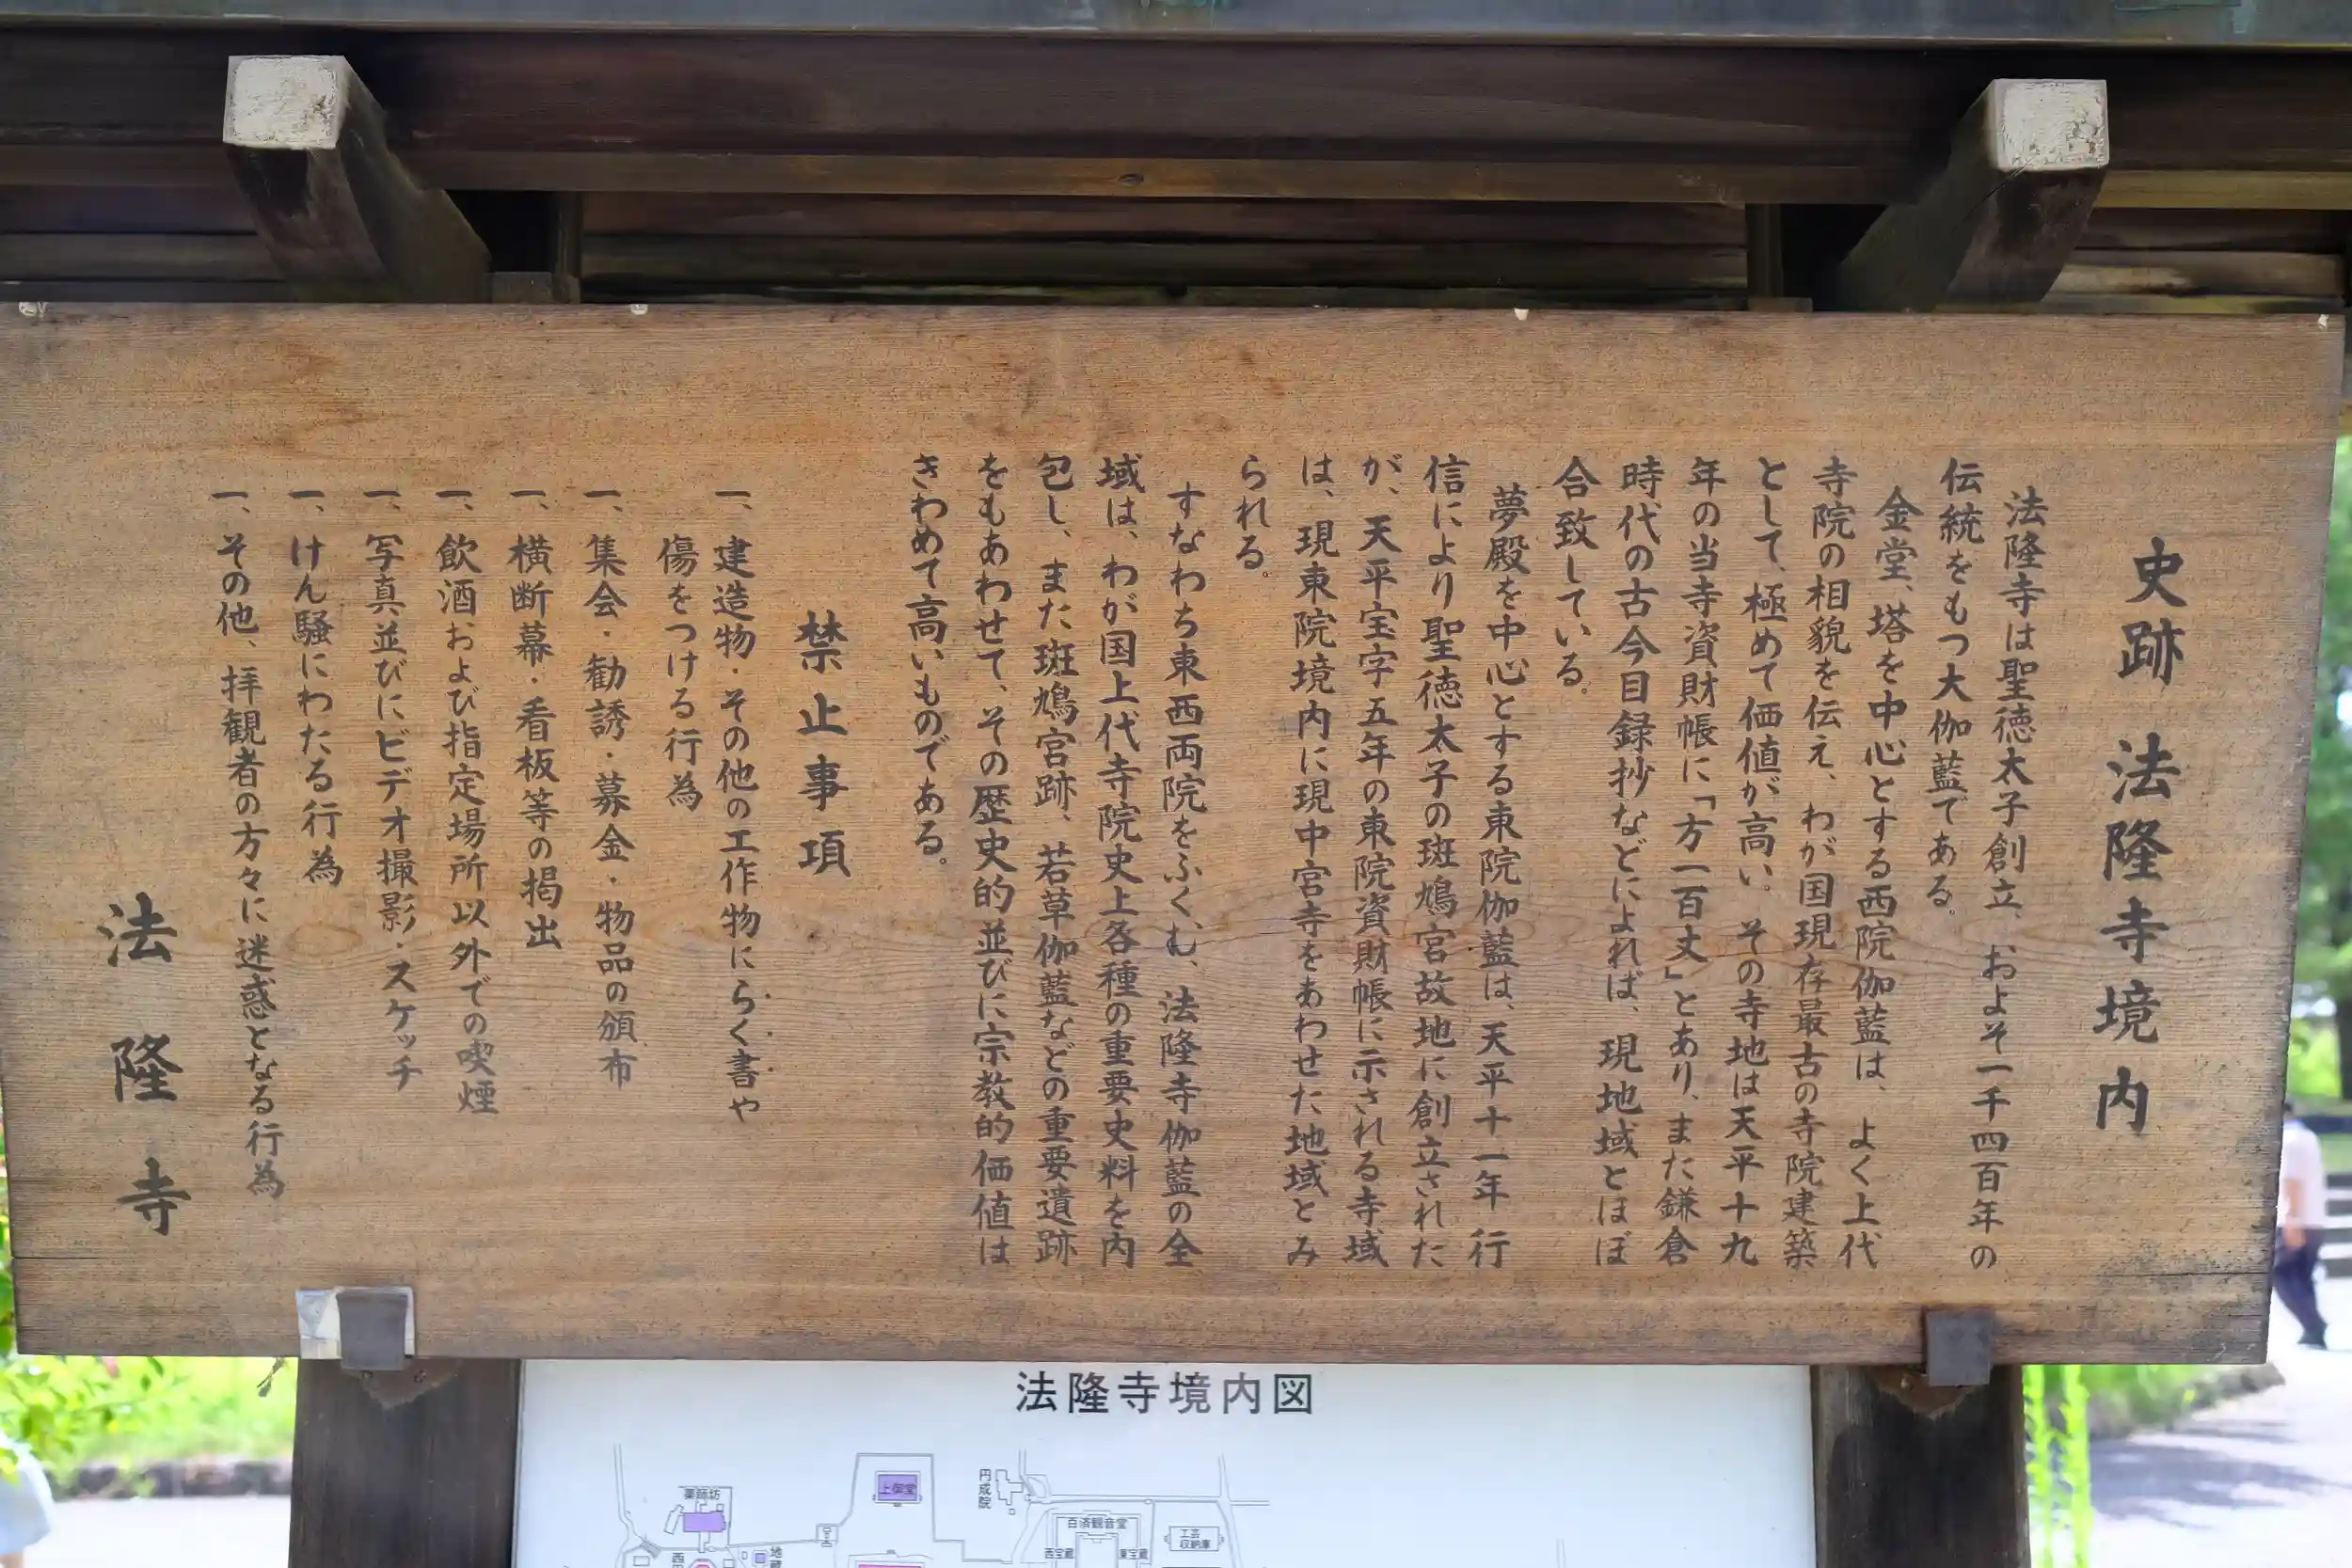 史跡 法隆寺境内
法隆寺は聖徳太子創立、およそ一千四百年の
伝統をもつ大伽藍である。
金堂、塔を中心とする西院伽藍は、よく上代
寺院の相貌を伝え、わが国現存最古の寺院建築
として、極めて価値が高い。その寺地は天平十九
年の当寺資財帳に「方一百丈」とあり、また鎌倉
時代の古今目録抄などによれば、現地域とほぼ
合致している。
夢殿を中心とする東院伽藍は、天平十一年行
信により聖徳太子の斑鳩宮故地に創立された
が、天平宝字五年の東院資財帳に示される寺域
は、現東院境内に現中宮寺をあわせた地域とみ
られる。
すなわち東西両院をふくむ、法隆寺伽藍の全
域は、わが国上代寺院史上各種の重要史料を内
包し、また斑鳩宮跡、若草伽藍などの重要遺跡
をもあわせて、その歴史的並びに宗教的価値は
きわめて高いものである。
禁止事項
一、建造物・その他の工作物にらく書や
傷をつける行為
一、集会・勧誘・募金・物品の頒布
一、横断幕・看板等の掲出
一、飲酒および指定場所以外での喫煙
一、写真並びにビデオ撮影・スケッチ
一、けん騒にわたる行為
一、その他、拝観者の方々に迷惑となる行為
法隆寺
法隆寺境内図
薬師坊
上御堂
円成院
百済観音堂
工芸収納庫
西宝蔵
東宝蔵